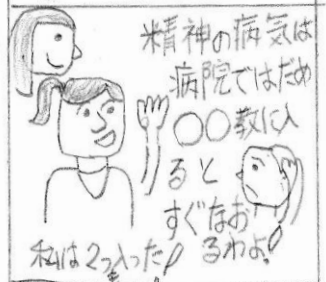 精神の病気は
病院ではだめ
○○教に入
ると
すぐなお
るわよ!
私は2つ入った!